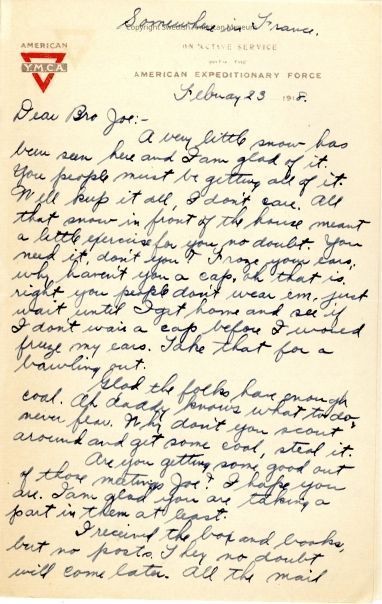 Somewhere in France.
Copyright Swedish American Museum
AMERICAN
Y.M.C.A.
ON ACTIVE SERVICE
WITH THE
AMERICAN EXPEDITIONARY FORCE
Febuary 23 1918.
Dear Bro Joe:-
A very little snow has
been seen here and I am glad of it.
You people must be getting all of it.
Well keep it all, I don't care. All
that snow in front of the house meant
a little exercise for you no doubt. You
need it, don't you? Froze your ears,
why haven't you a cap, oh that is
right you people don't wear em, just
wait until I get home and see if
I don't wair a cap before I would
freeze my ears. Take that for a
bawling out.
Glad the folks have enough
coal. Ah daddy knows what to do
never fear. Why don't you scout
around and get some coal, steal it.
Are you getting some good out
of those meetings Joe? I hope you
are. I am glad you are taking a
part in them at least.
I received the box and books,
but no posts. They no doubt
will come later. All the mail